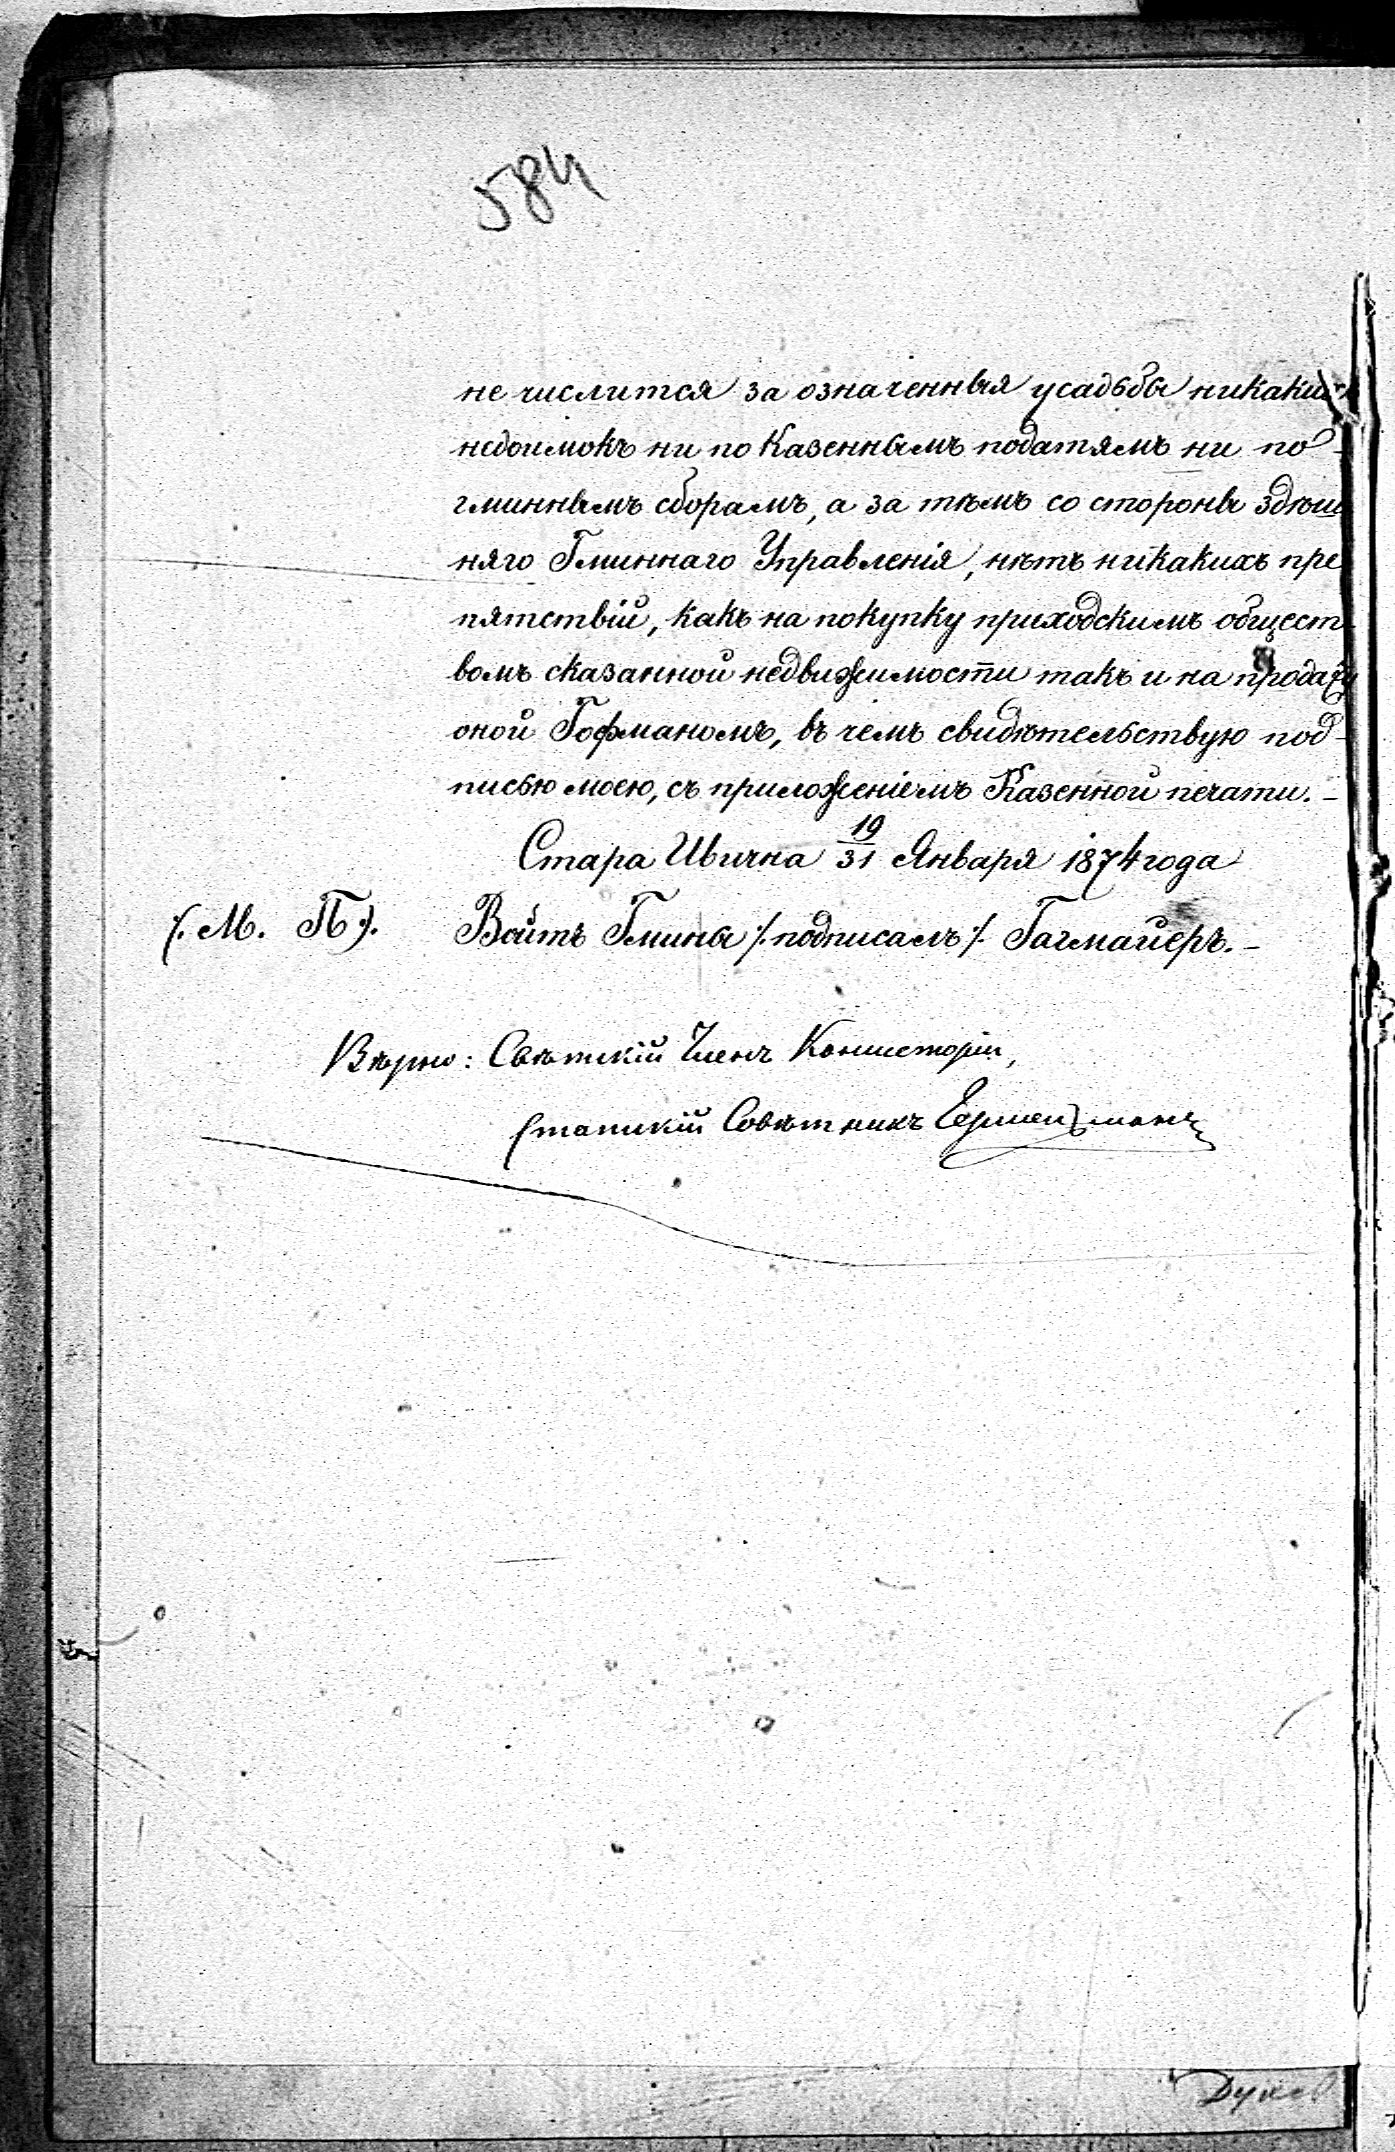 584
не числится за означенныя усадьбы никаких
недоимокъ ни по Казеннымъ податямъ ни по
гминнымъ сборамъ, а за тѣмъ со стороны здѣш
няго Гминнаго Управленія, нѣтъ никакихъ пре
пятствій, какъ на покупку приходскимъ общест
вомъ сказанной недвижимости такъ и на продажу
оной Гофманомъ, въ чемъ свидѣтельствую под-
писью моею, съ приложеніемъ Казенной печати.-
Стара Ивична 19/31 Января 1874 года
/. М. П ./. Войтъ Гмины /. подписалъ ./. Гагмайеръ.-
Вѣрно: Свѣтскій Членъ Консисторіи,
Статскій Совѣтникъ